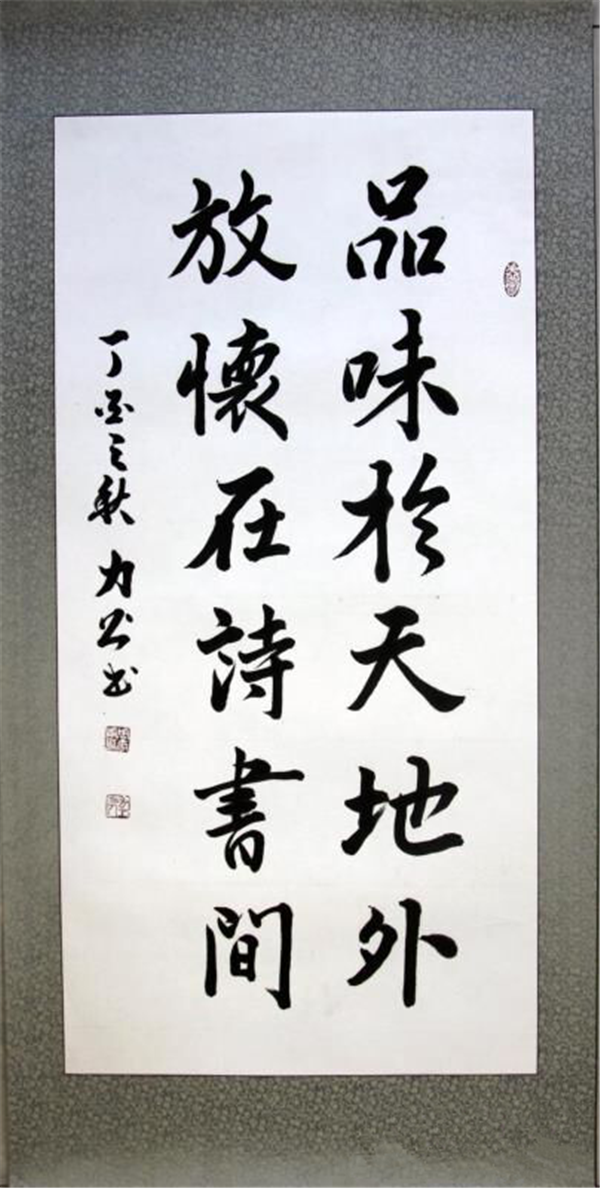 品味於天地外
放懷在詩書間
丁酉之秋 力公书